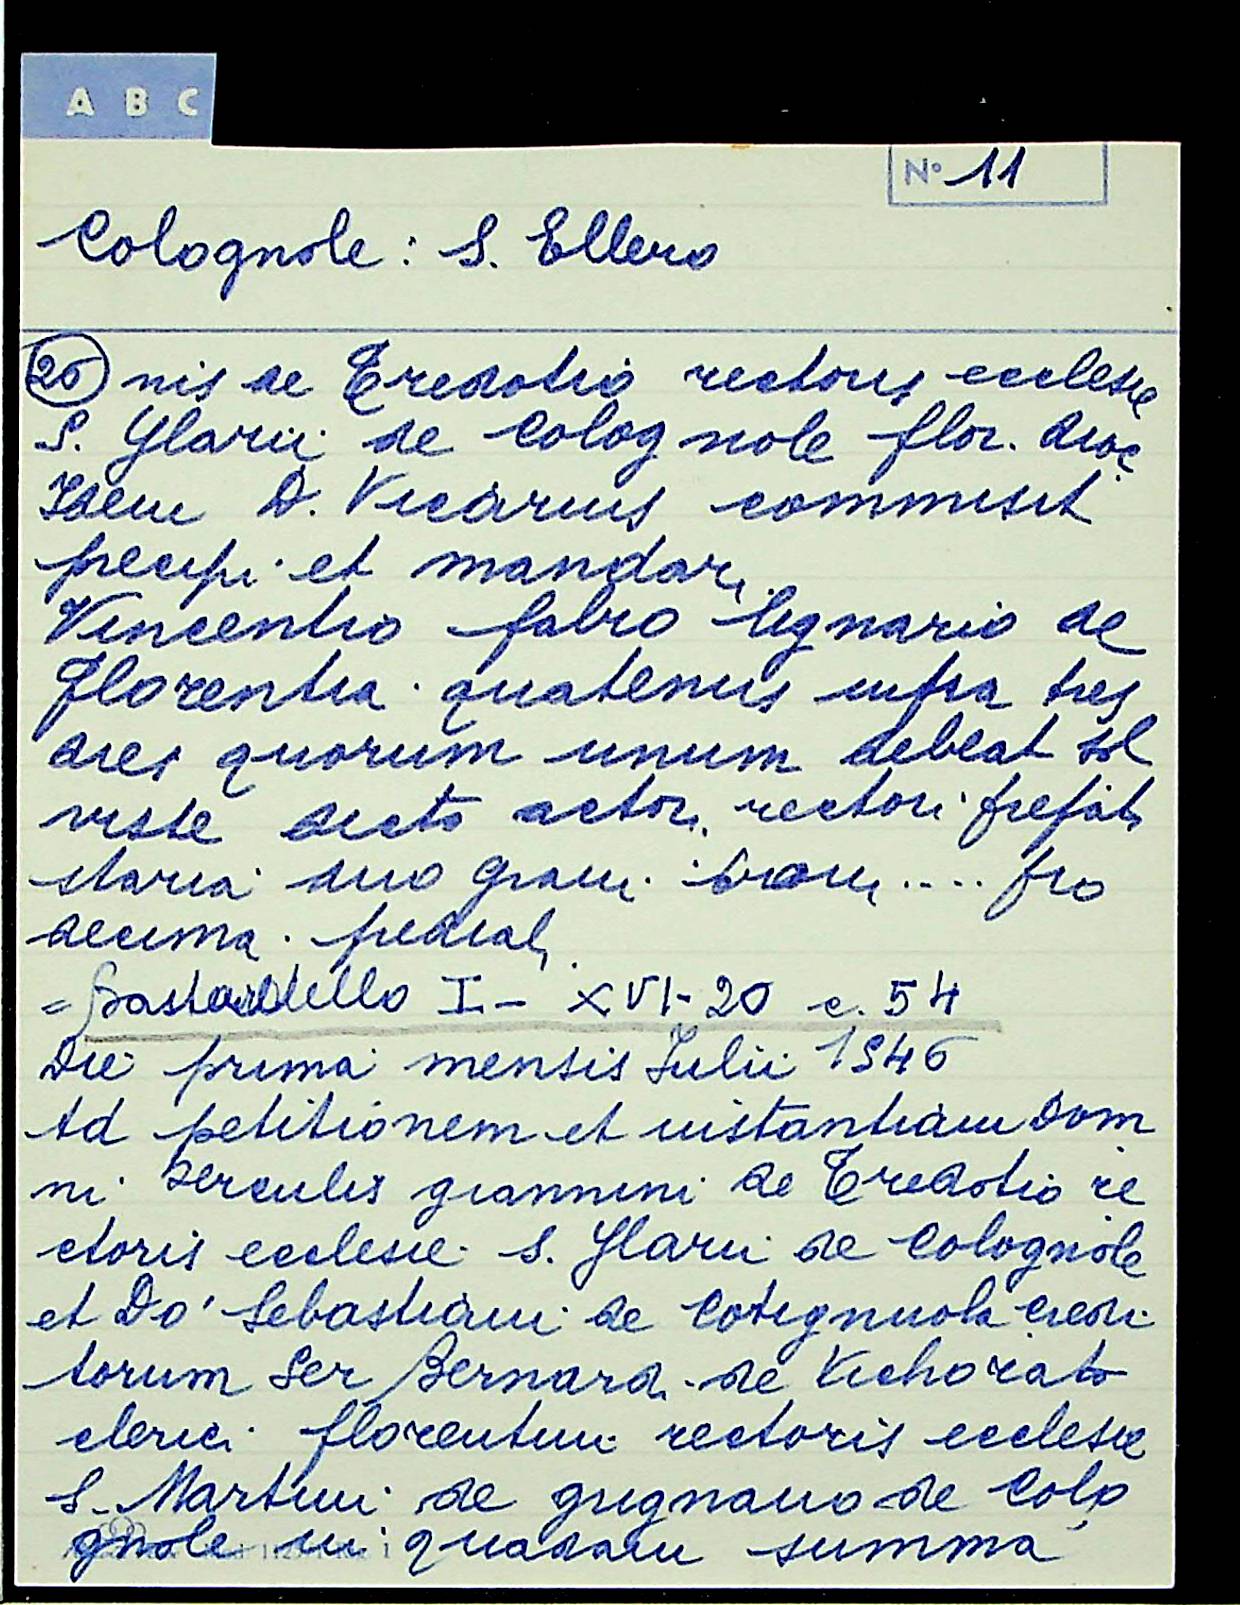 A B C
N° 11
Colognole: S. Ellero
26 nis de Tredotio rectoris ecclesie
S. Ylarii de Colognole flor. dioc
Idem D. Vicarius commisit
precipi et mandari
Vincentio fabro lignario de
Florentia quatenus infra tres
dies quorum unum debeat sol
visse dicto actori rectori prefato
staria duo grani boni .... pro
decima. predial,
= Bastardello I - XVI-20 c. 54
Die prima mensis Iulii 1546
Ad petitionem et instantiam Dom
ni Herculis giannini de Tredotio re
ctoris ecclesie S. Ylarii de Colognole
et Do' Sebastiani de Cotignuola credi
torum Ser Bernardi de Vichorato
clerici florentini rectoris ecclesie
S. Martini de grignano de Colo
gnole in quadam summa